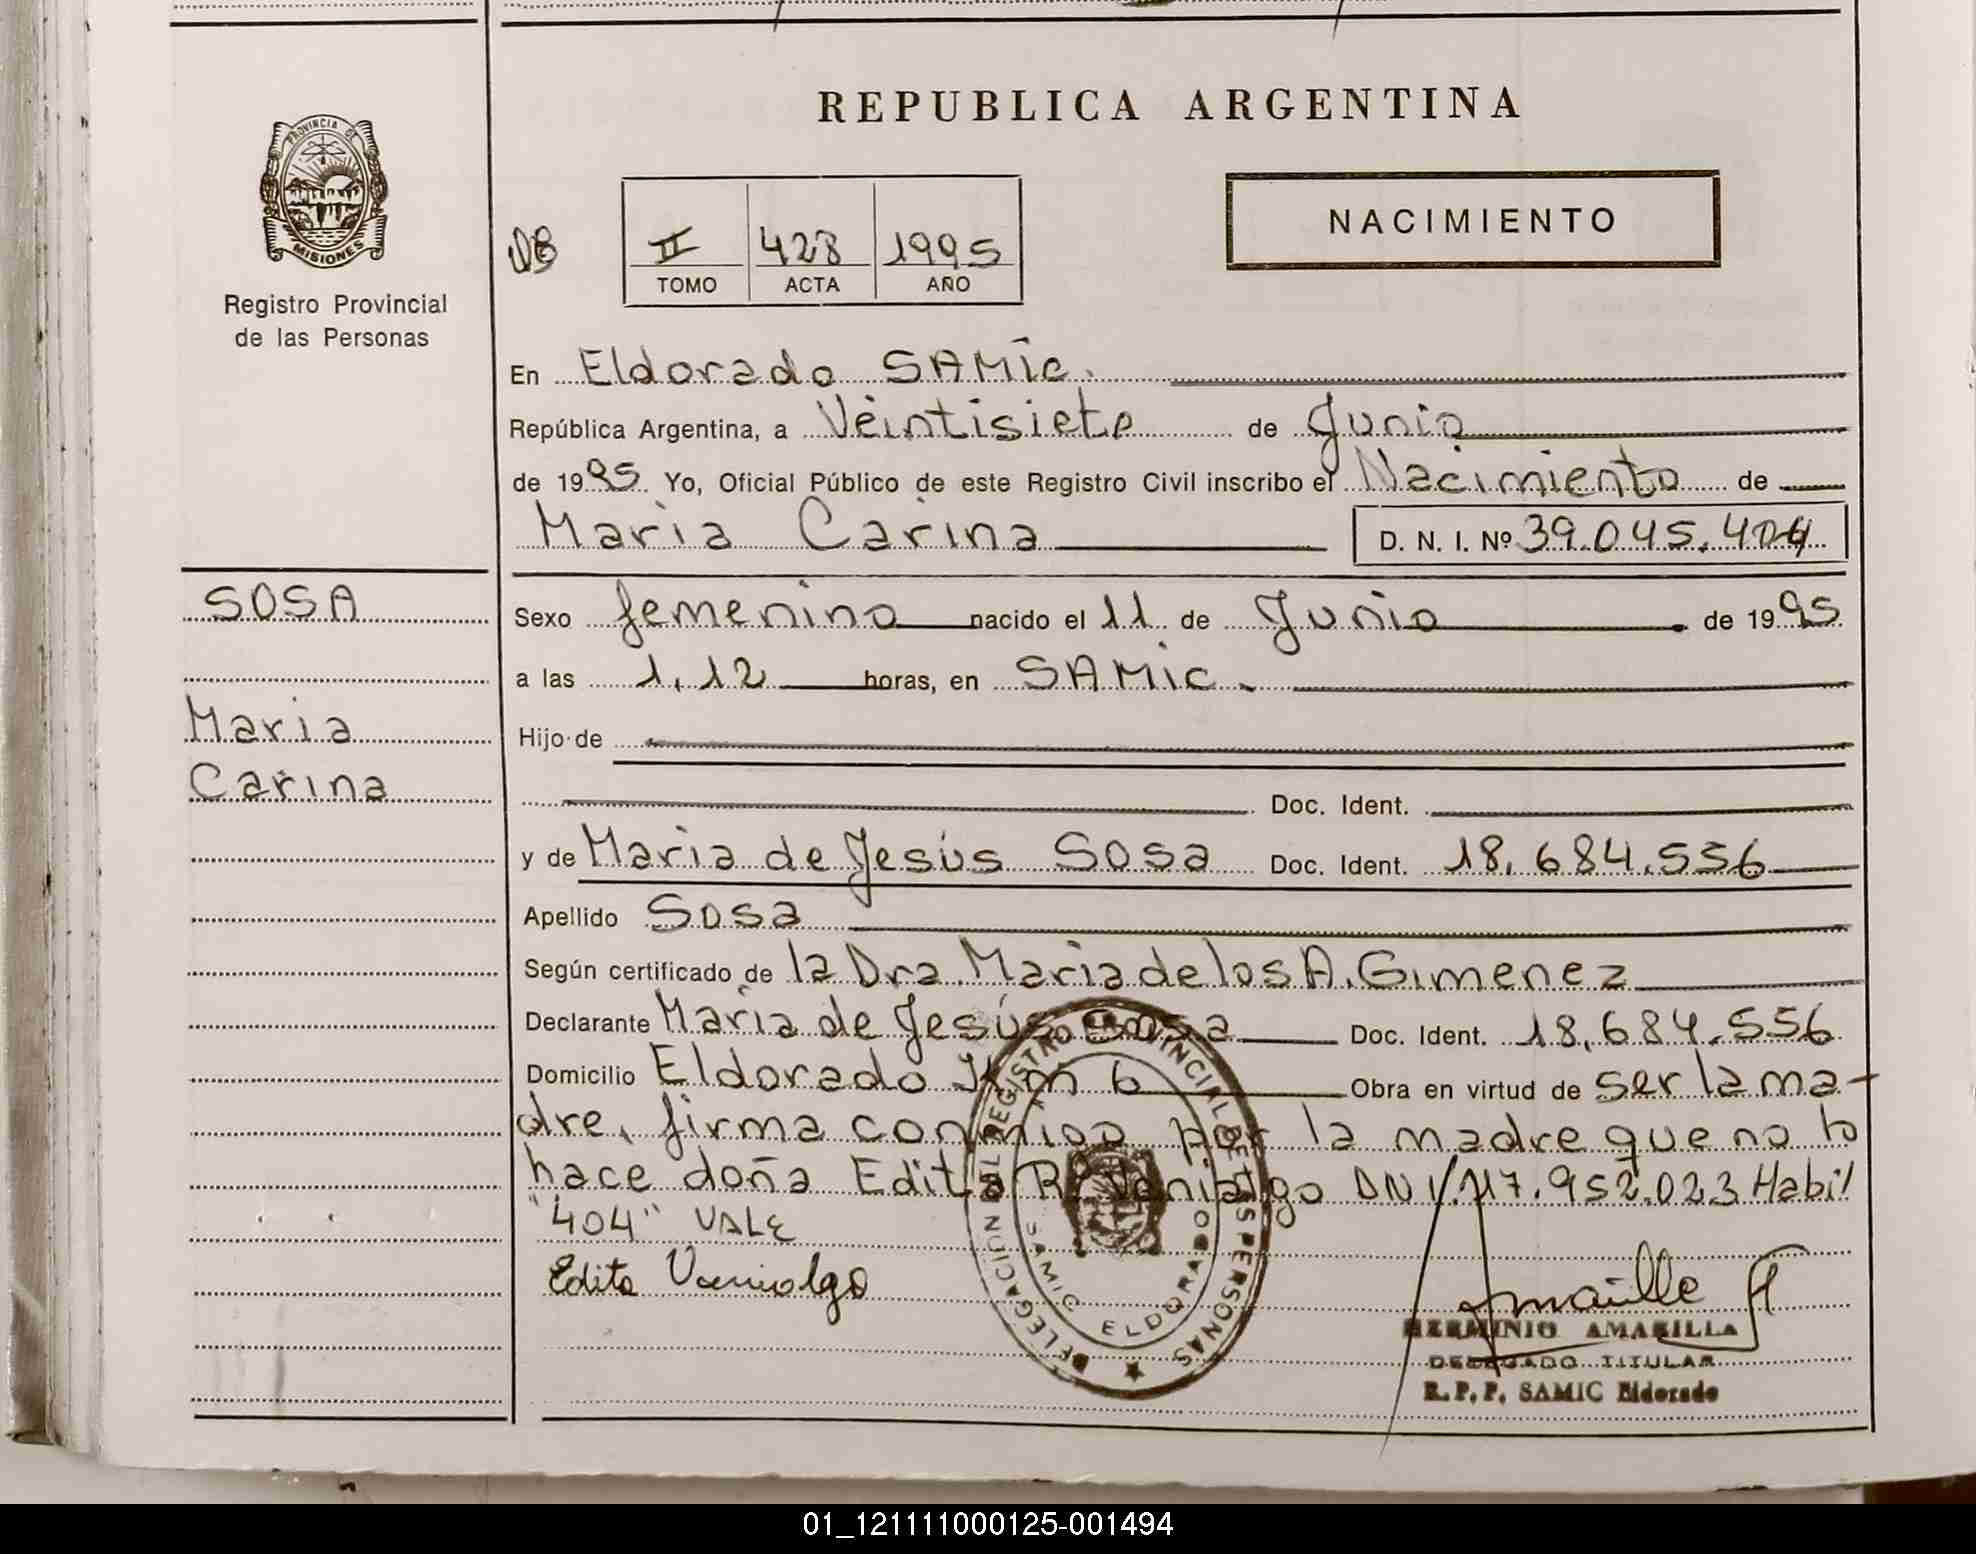 REPUBLICA ARGENTINA
PROVINCIA DE
MISIONES
Registro Provincial
de las Personas
NACIMIENTO
II 428 1995
TOMO ACTA AÑO
En Eldorado SAMic.
República Argentina, a Veintisiete de Junio
de 1995 Yo, Oficial Público de este Registro Civil inscribo el Nacimiento de
Maria Carina D. N. I. Nº 39.045.404
SOSA
Maria
Carina
Sexo femenino nacido el 11 de Junio de 1995
a las 1,12 horas, en SAMic.
Hijo de
Doc. Ident.
y de Maria de Jesús Sosa Doc. Ident. 18.684.556
Apellido Sosa
Según certificado de la Dra. Maria de los A. Gimenez
Declarante Maria de Jesús Sosa Doc. Ident. 18.684.556
Domicilio Eldorado Km 6 Obra en virtud de ser la ma-
dre, firma conmigo por la madre que no lo
hace doña Edita R. DNI. 17.952.023 Habil
"404" VALE
Edita
DELEGACION DEL REGISTRO PROVINCIAL DE LAS PERSONAS
SAMIC ELDORADO
HERMINIO AMARILLA
DELEGADO TITULAR
R. P. P. SAMIC Eldorado
01_121111000125-001494